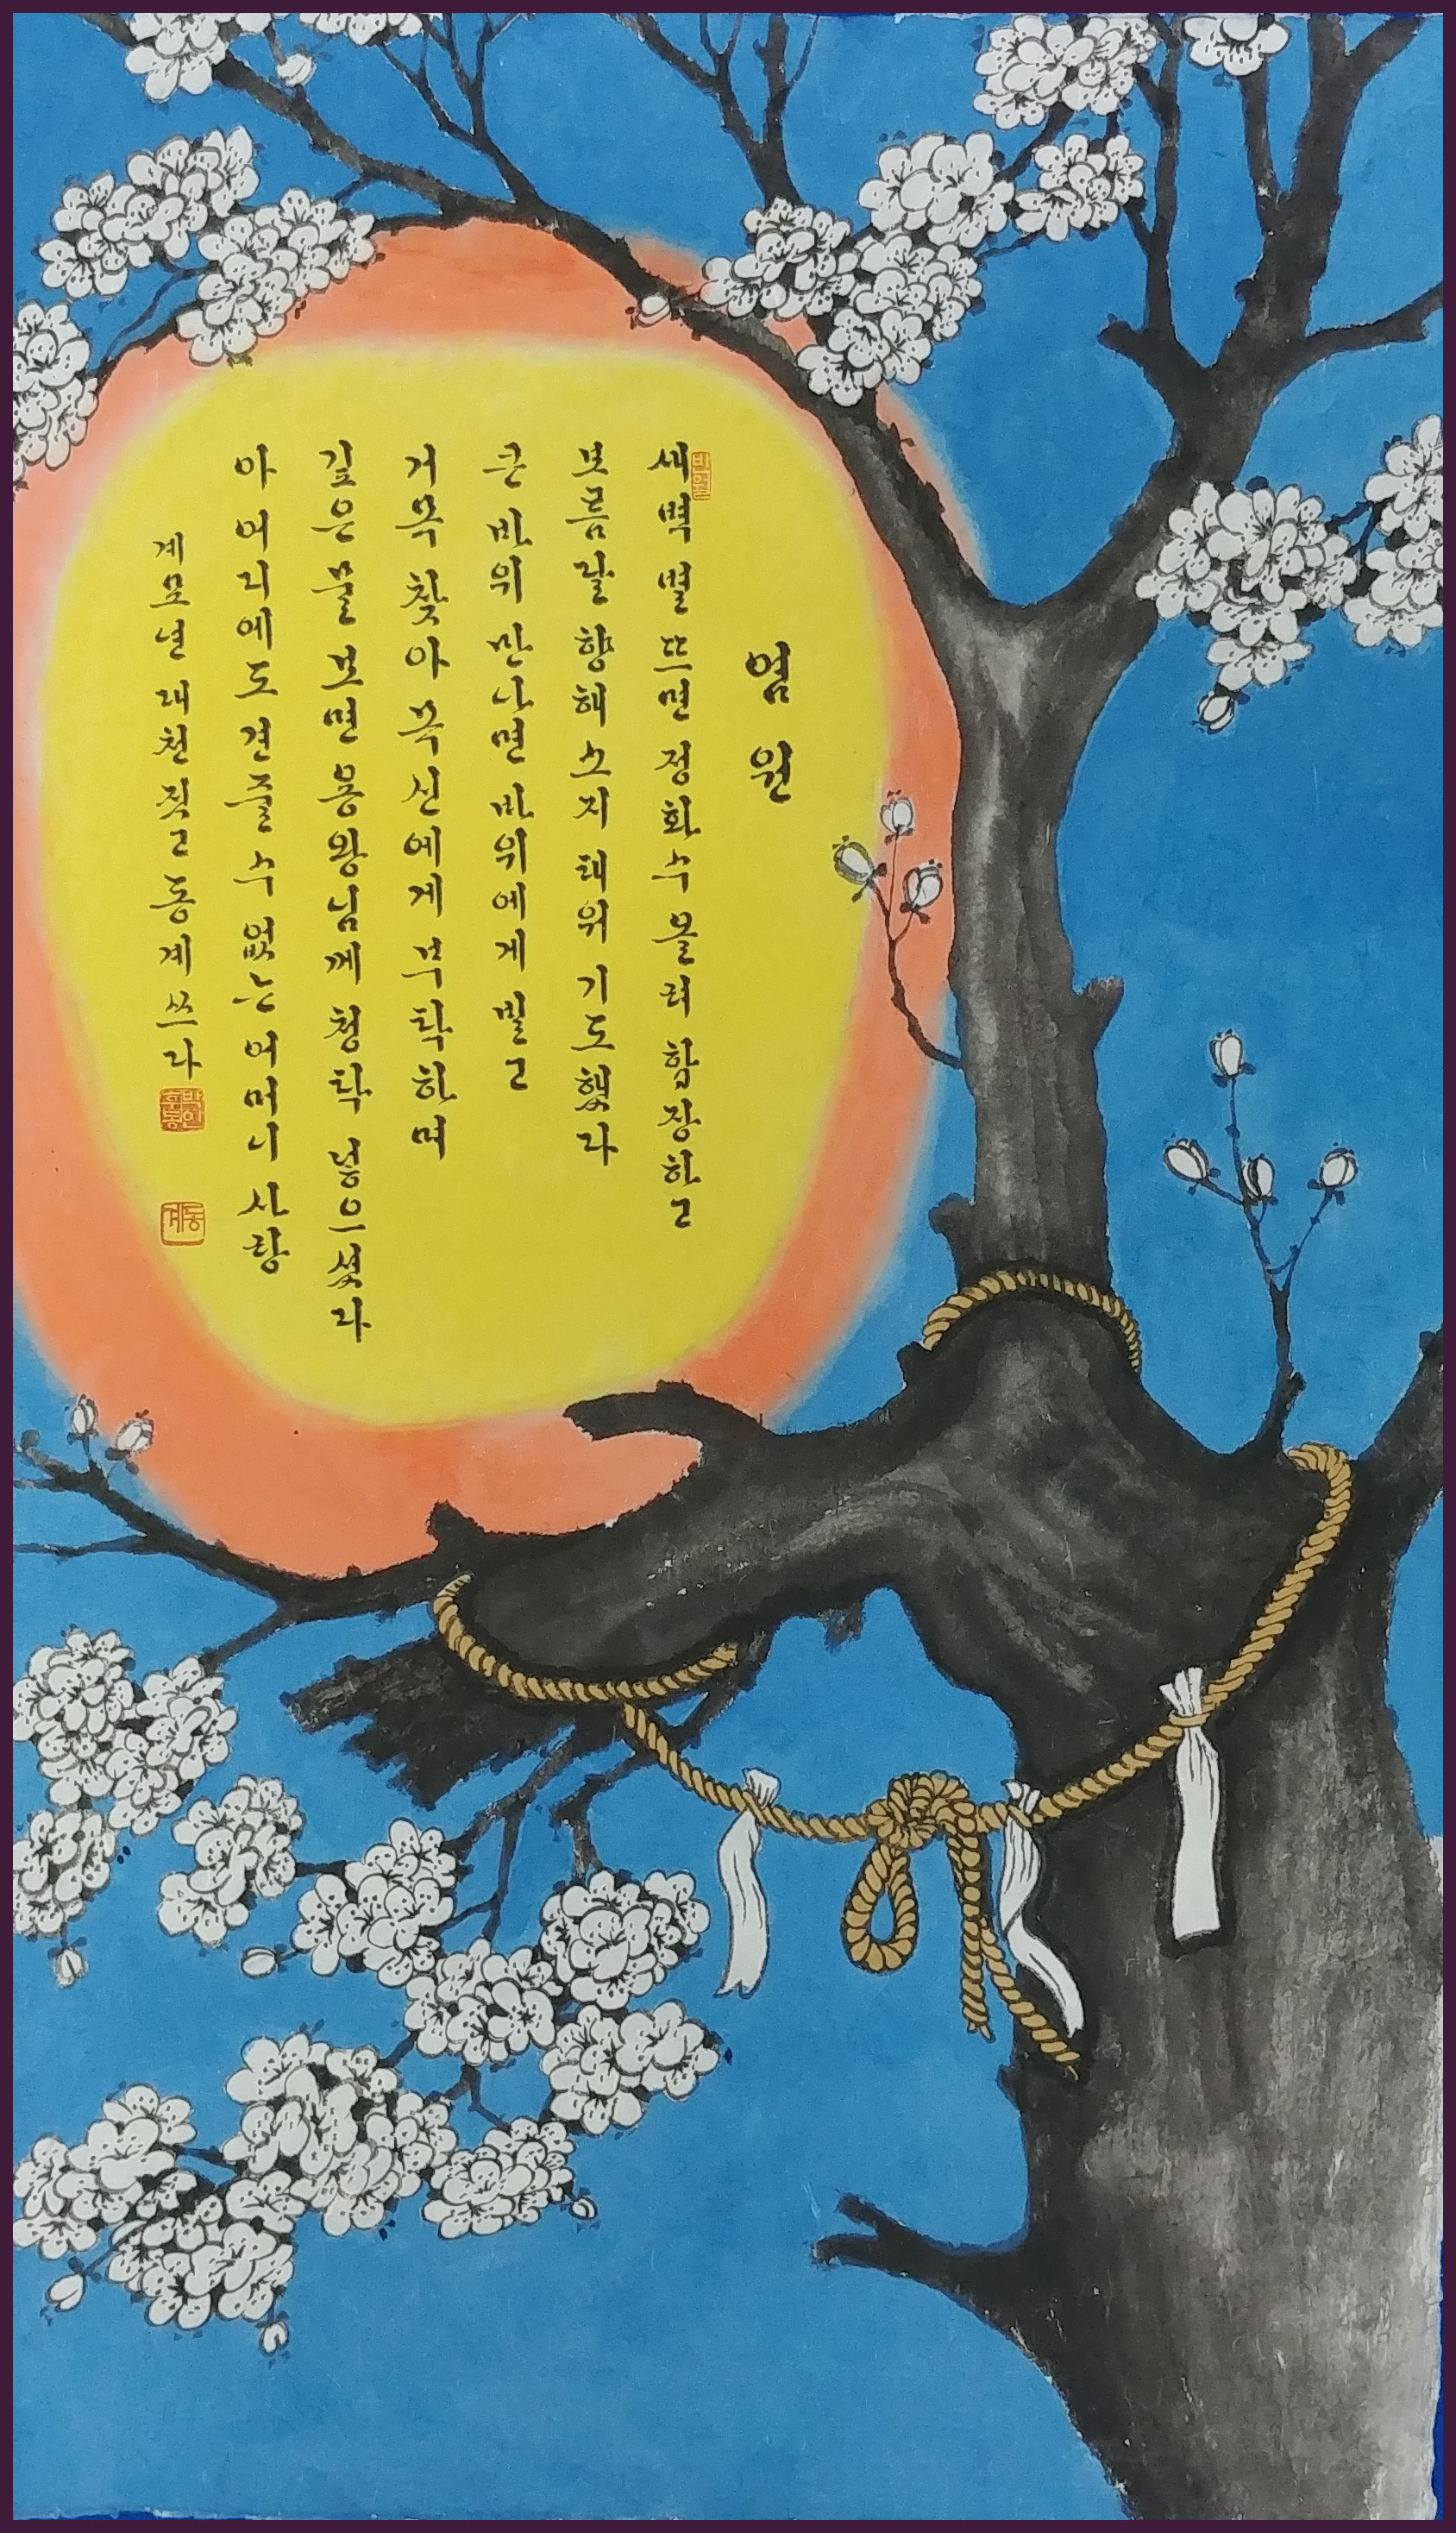 염원
새벽 별 뜨면 정화수 올려 합장하고
보름달 향해 소지 태워 기도했다
큰 바위 만나면 바위에게 빌고
거목 찾아 목신에게 부탁하며
깊은 물 보면 용왕님께 청탁 넣으셨다
아 어디에도 견줄 수 없는 어머니 사랑
계묘년 대천 짓고 동계 쓰다
동계